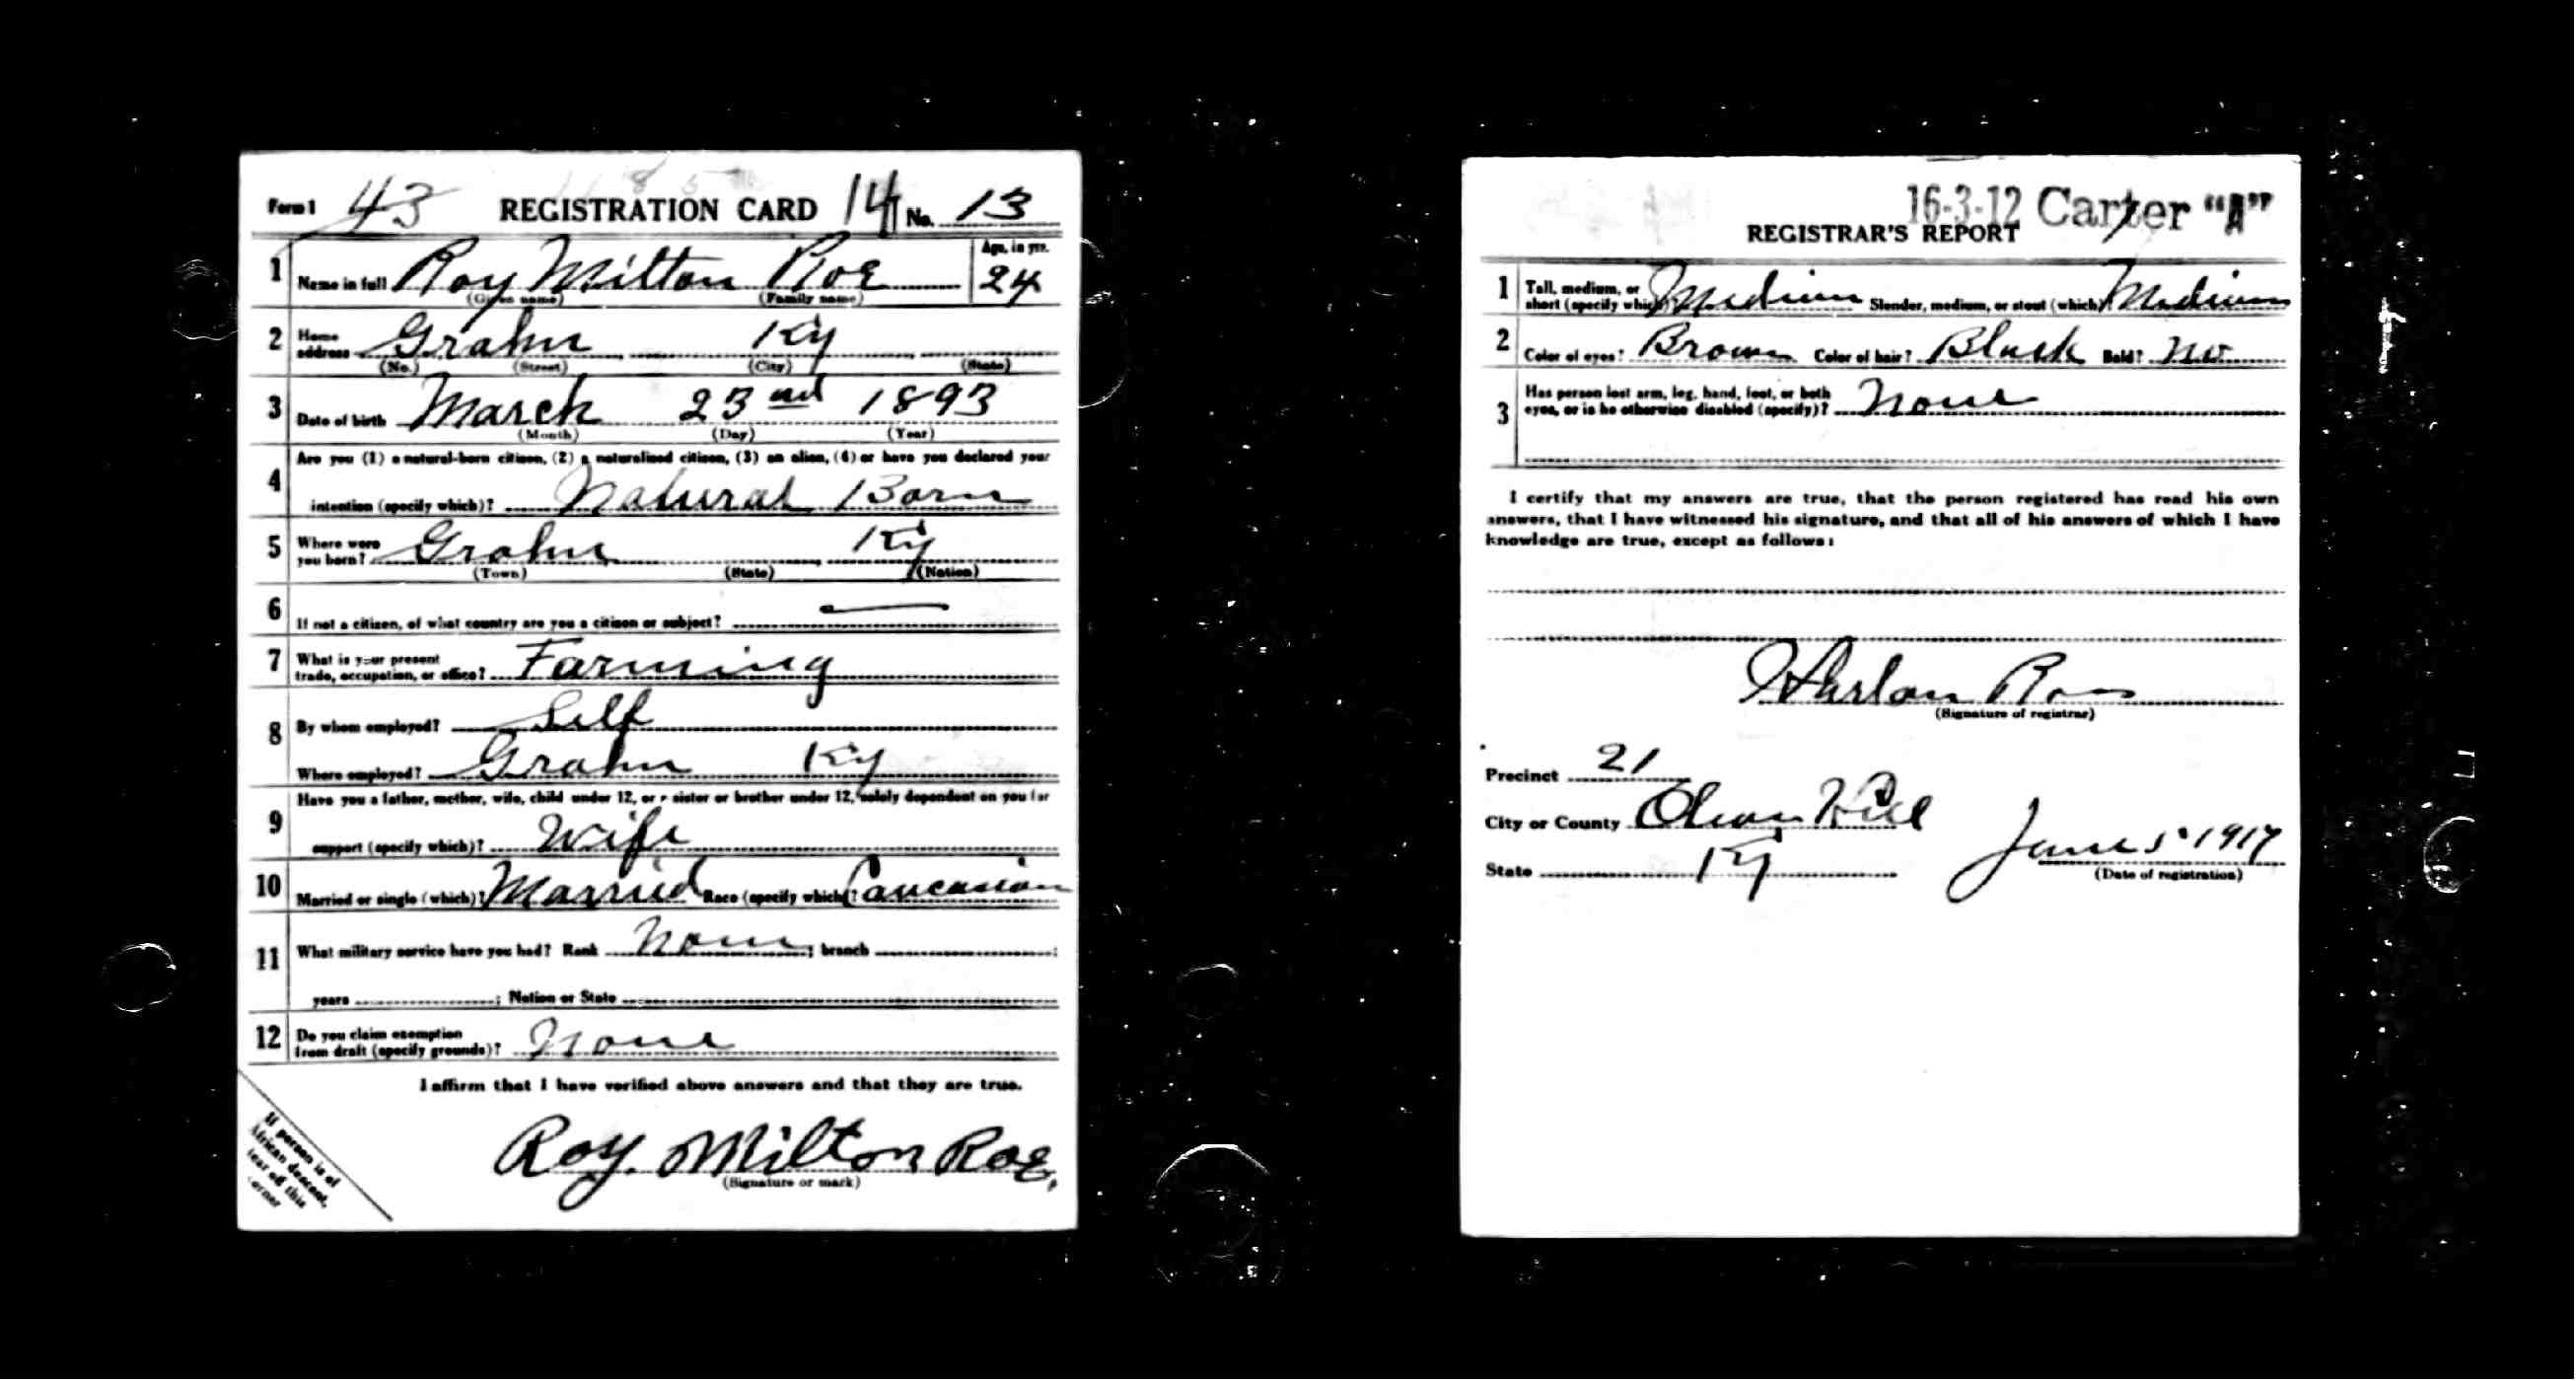 Form 1 43 REGISTRATION CARD 14 No. 13
1 Name in full Roy Milton Roe Age, in yrs. 24
(Given name) (Family name)
2 Home address Grahn Ky
(No.) (Street) (City) (State)
3 Date of birth March 23rd 1893
(Month) (Day) (Year)
4 Are you (1) a natural-born citizen, (2) a naturalized citizen, (3) an alien, (4) or have you declared your
intention (specify which)? Natural Born
5 Where were you born? Grahn Ky
(Town) (State) (Nation)
6 If not a citizen, of what country are you a citizen or subject? —
7 What is your present trade, occupation, or office? Farming
8 By whom employed? Self
Where employed? Grahn Ky
9 Have you a father, mother, wife, child under 12, or a sister or brother under 12, solely dependent on you for
support (specify which)? Wife
10 Married or single (which)? Married Race (specify which)? Caucasian
11 What military service have you had? Rank None ; branch ;
years ; Nation or State
12 Do you claim exemption from draft (specify grounds)? None
I affirm that I have verified above answers and that they are true.
Roy. Milton Roe.
(Signature or mark)
If person is of
African descent,
tear off this
corner
16-3-12 Carter "A"
REGISTRAR'S REPORT
1 Tall, medium, or short (specify which)? Medium Slender, medium, or stout (which)? Medium
2 Color of eyes? Brown Color of hair? Black Bald? No
3 Has person lost arm, leg, hand, foot, or both
eyes, or is he otherwise disabled (specify)? None
I certify that my answers are true, that the person registered has read his own
answers, that I have witnessed his signature, and that all of his answers of which I have
knowledge are true, except as follows:
Harlan
(Signature of registrar)
Precinct 21
City or County Olive Hill
State Ky June 5 1917
(Date of registration)